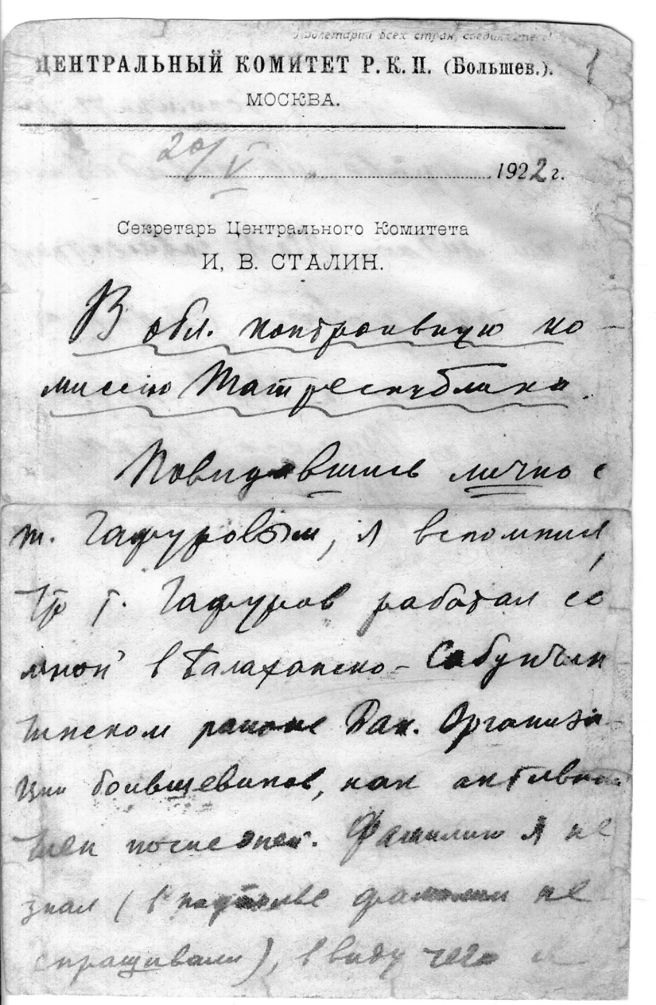 Пролетарии всех стран, соединяйтесь!
1
ЦЕНТРАЛЬНЫЙ КОМИТЕТ Р. К. П. (Большев.).
МОСКВА.
20/V 1922 г.
Секретарь Центрального Комитета
И, В. СТАЛИН.
В обл. контрольную ко-
миссию Татреспублики.
Повидавшись лично с
т. Гафуровым, я вспомнил,
что т. Гафуров работал со
мной в Балаханско-Сабунчин-
шинском районе Бак. Организа-
ции большевиков, как активный
член последней. Фамилию я не
знал (в подполье фамилии не
спрашивали), ввиду чего